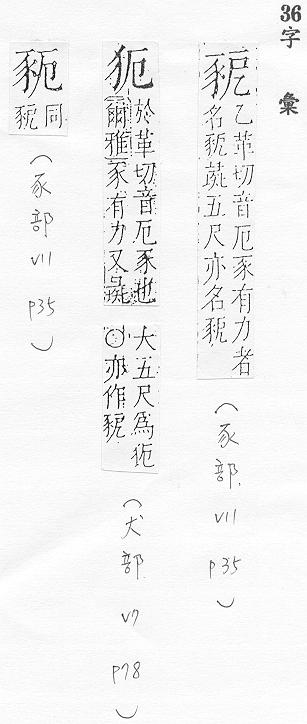 36字彙
乙革切音厄豕有力者
名豟蔬五尺亦名豟
(豕部 v11 p35)
於革切音厄豕也
爾雅豕有力又
大五尺爲
○亦作豟
(犬部 v7 p78)
豟
同
(豕部 v11 p35)